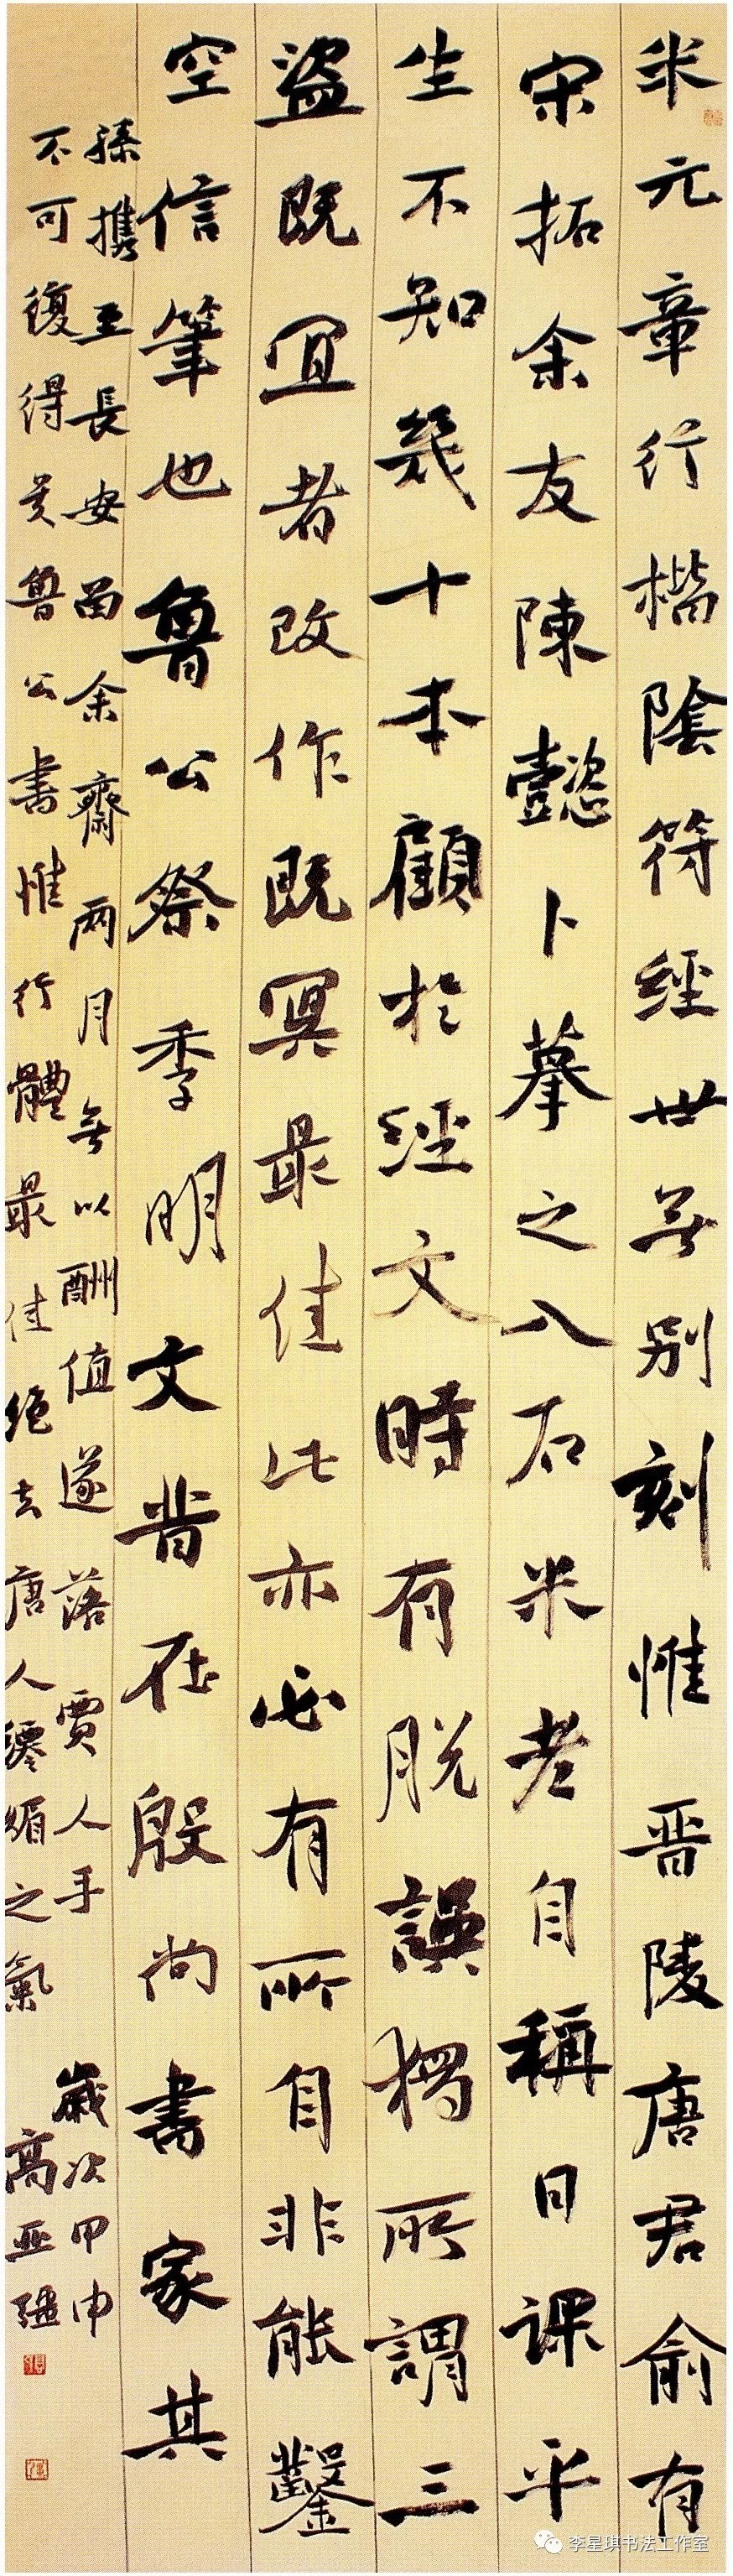 米元章行楷陰符經世无別刻惟晋陵唐君俞有
宋拓余友陳懿卜摹之八石米老自稱日課平
生不知幾十本顧於經文時有脱誤獨所謂三
盜既宜者改作既冥最佳此亦必有所自非能鑿
空信筆也魯公祭季明文昔在殷尚書家其
孫携至長安留余齋兩月無以酬值遂落賈人手
不可復得矣魯公書惟行體最佳絕去唐人纖媚之氣
歲次甲申
高亚
李星琪书法工作室